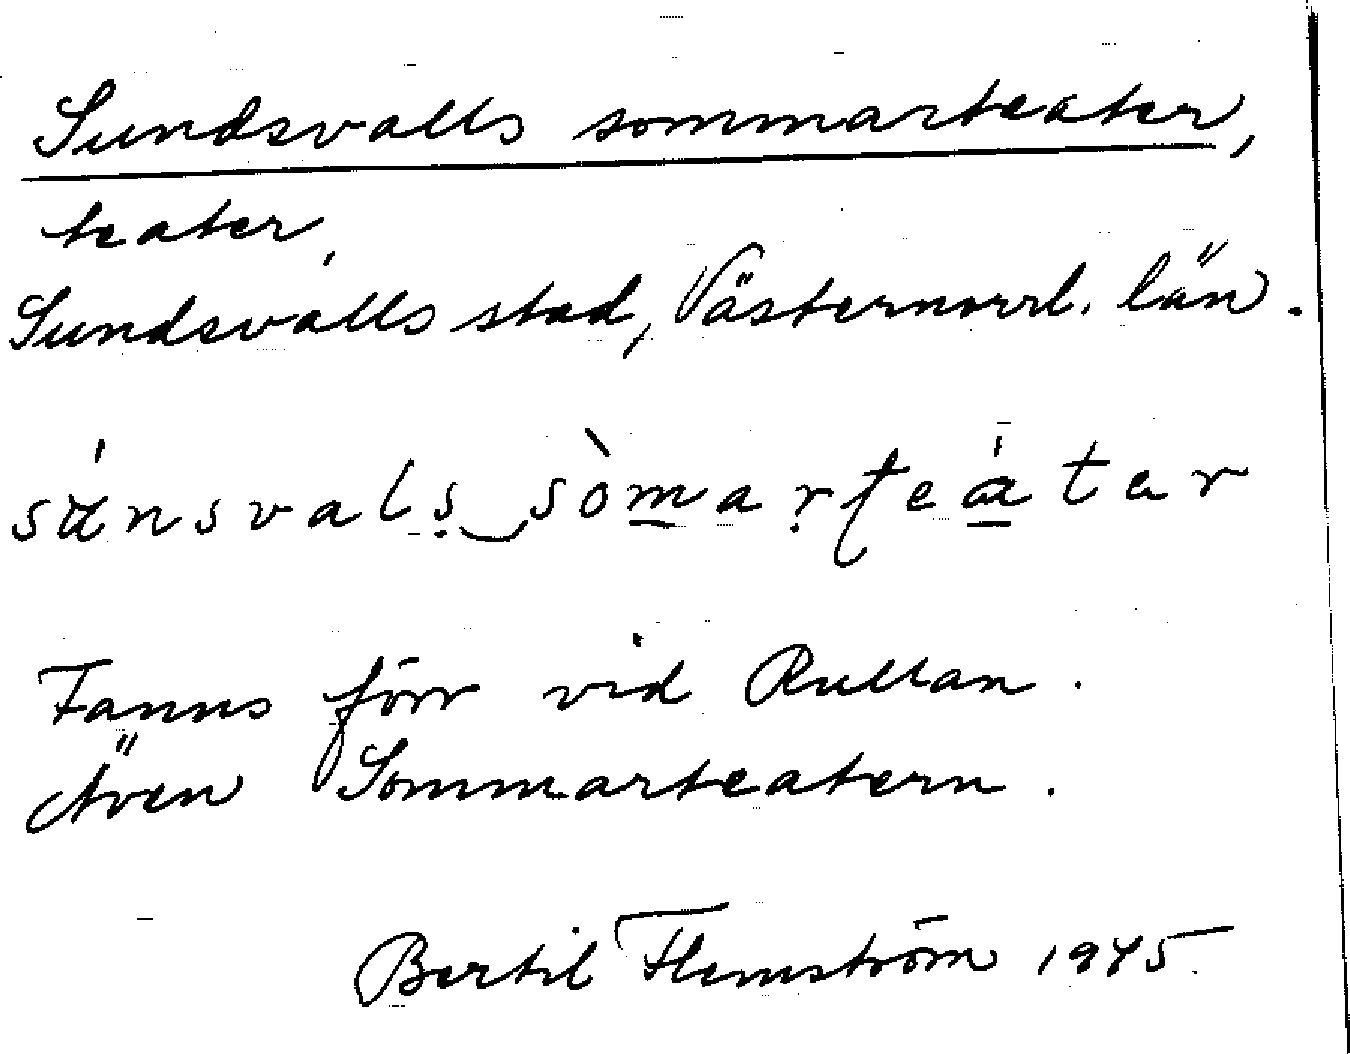 Sundsvalls sommarteater,
teater,
Sundsvalls stad, Västernorrl. län.
Fanns förr vid Rullan.
Även Sommarteatern.
Bertil Flemström 1975